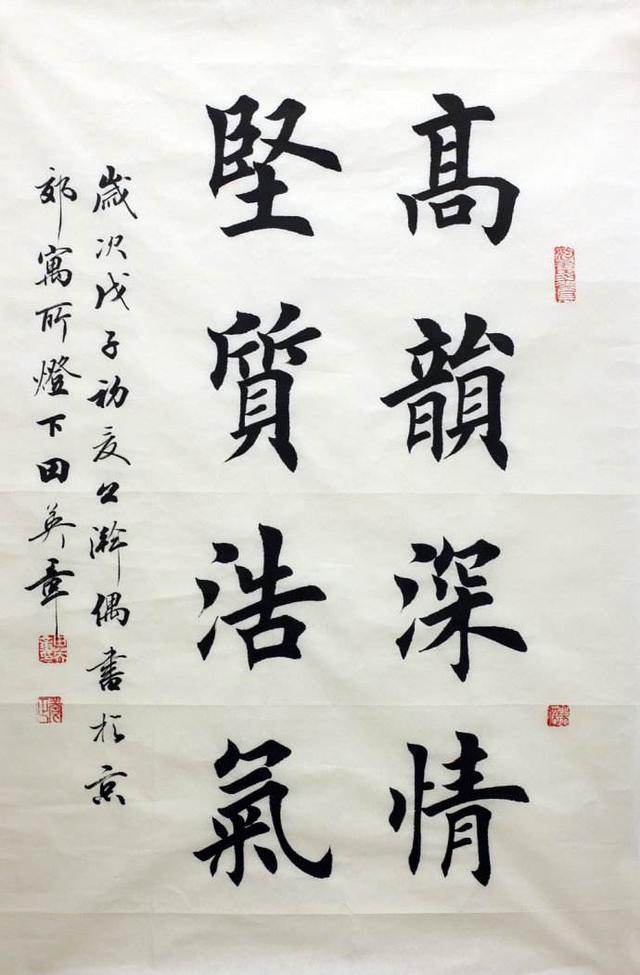 髙韻深情
堅質浩氣
歲次戊子初夏偶書於京
郊寓所燈下田英章